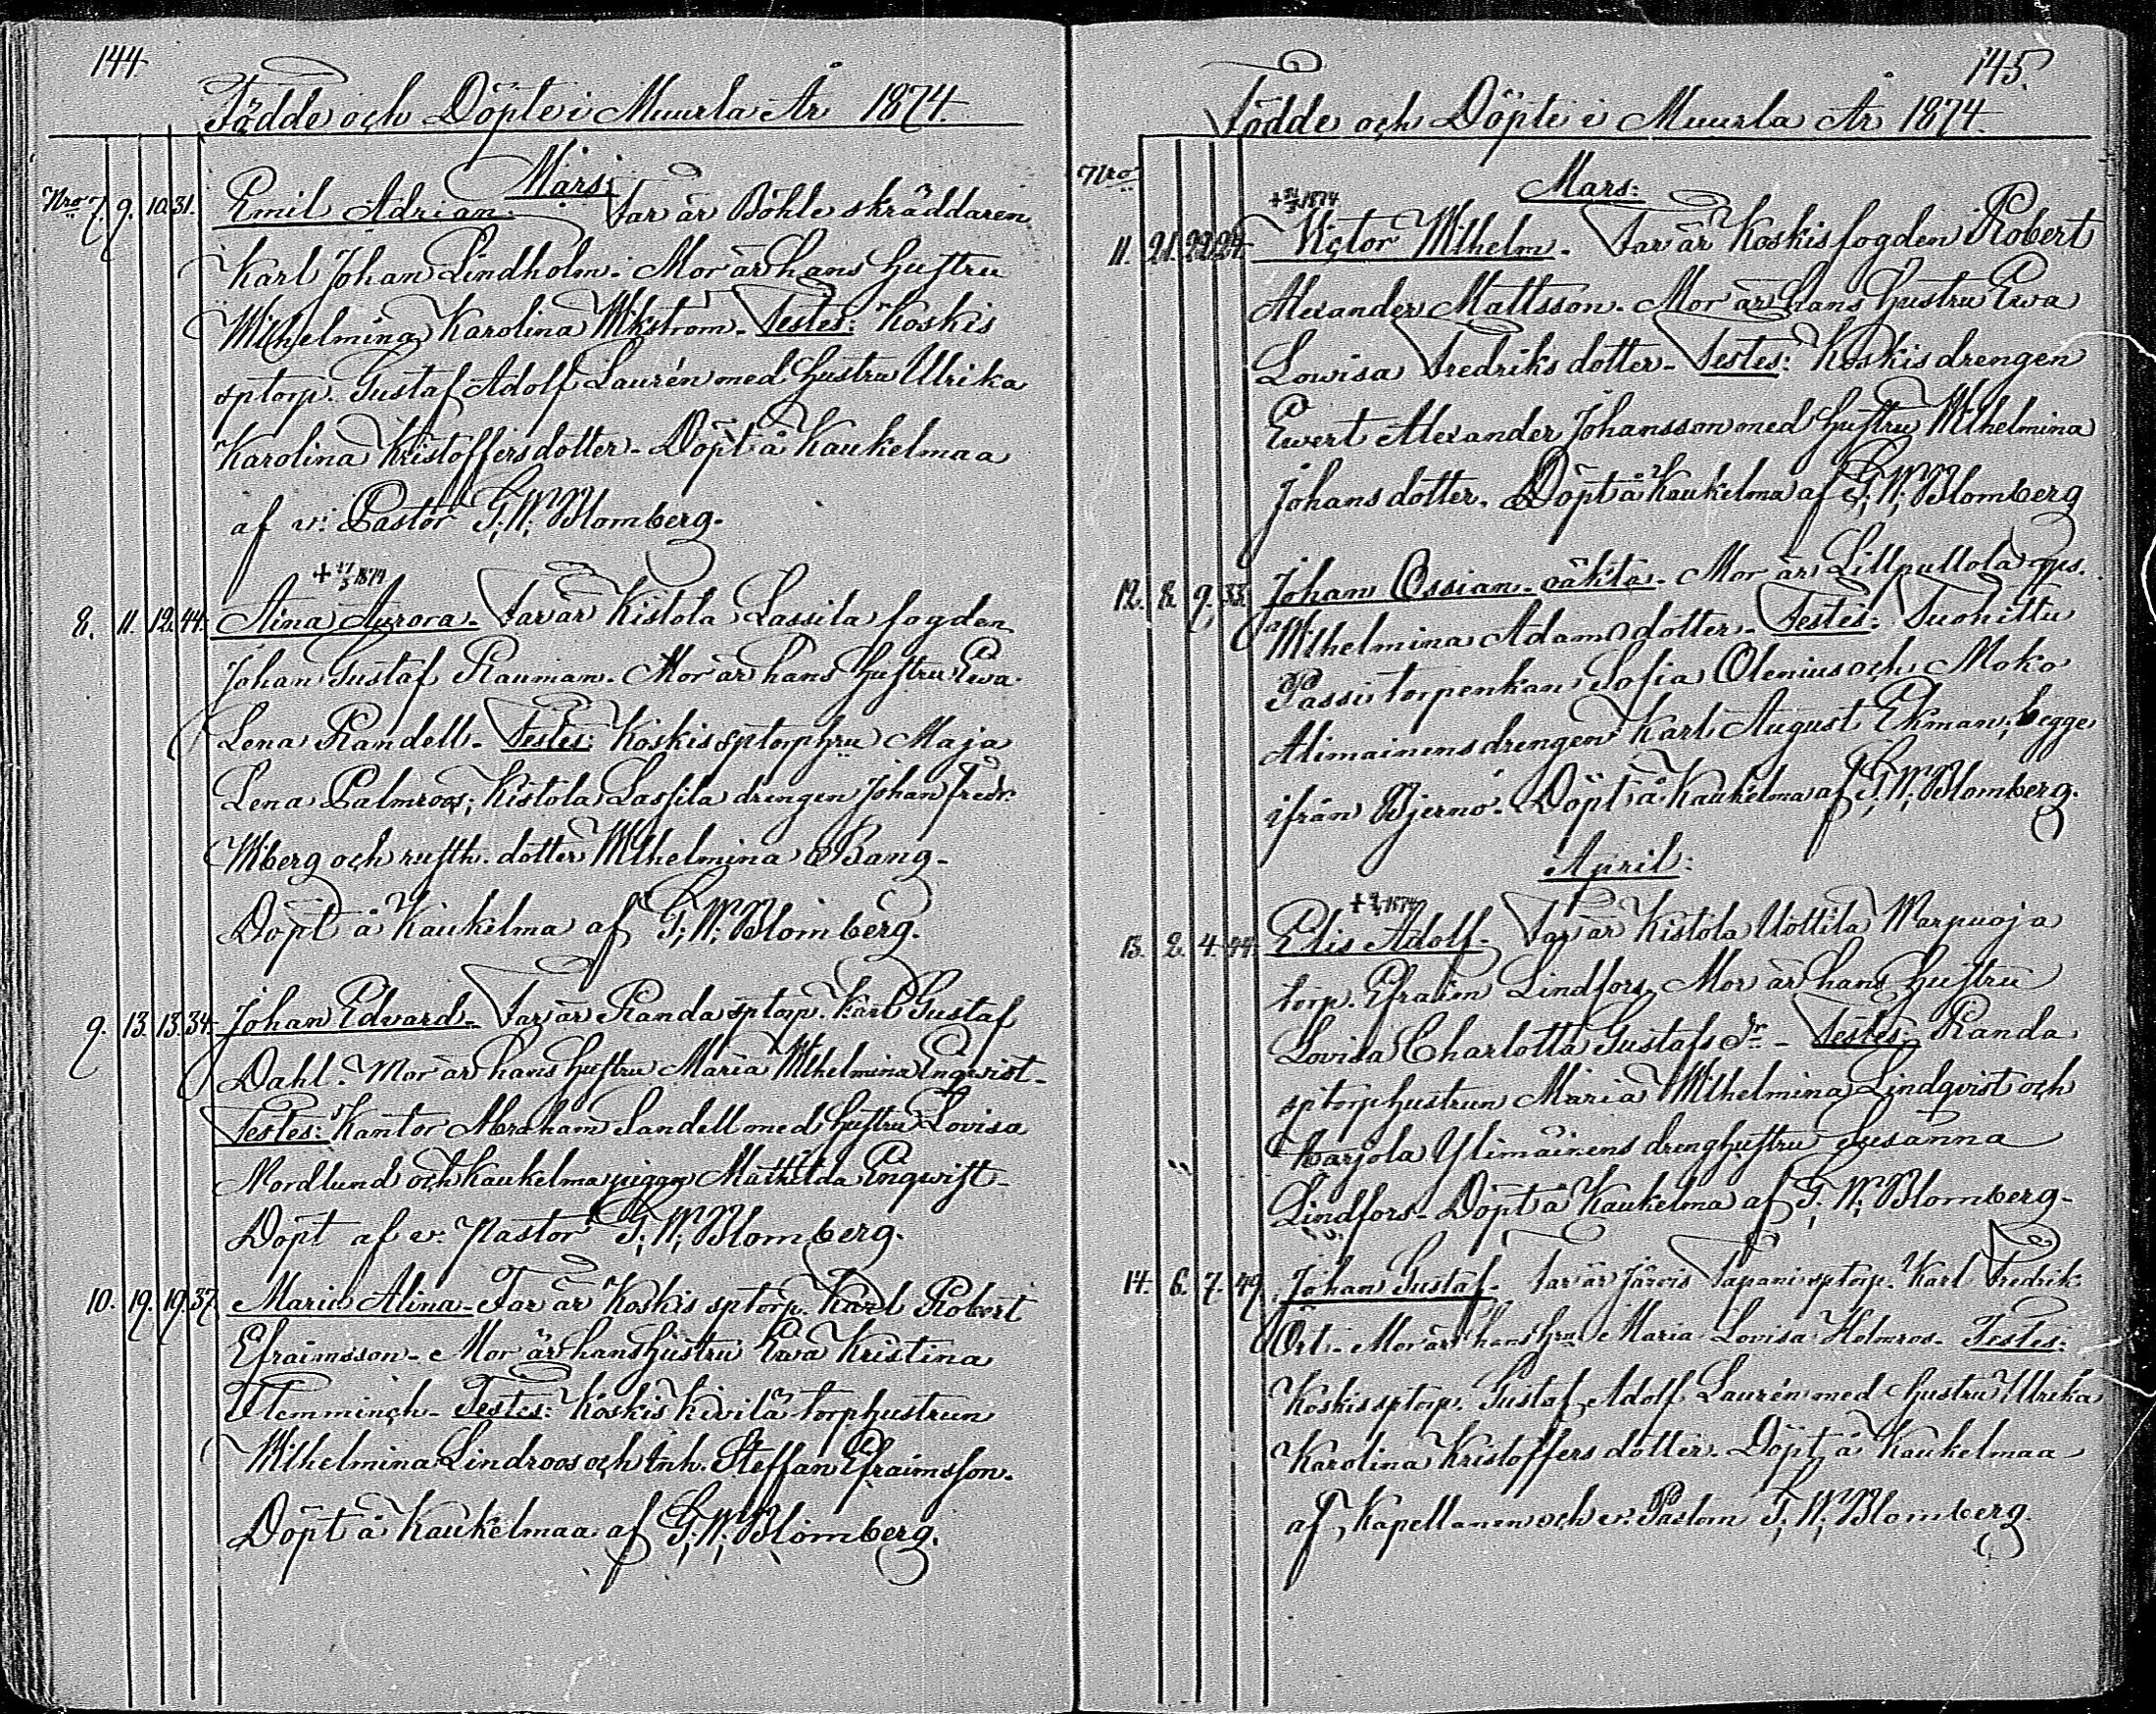 144
Födde och Döpte i Muurla År 1874.
Mars:
Nro 7. 9. 10. 31. Emil Adrian. Far är Böhle skräddaren
Karl Johan Lindholm. Mor är hans hustru
Wilhelmina Karolina Wikström. Testes: Koskis
sptorp. Gustaf Adolf Laurén med hustru Ulrika
Karolina Kristoffersdotter. Döpt å Kaukelmaa
af v. Pastor G. W. Blomberg.
+ 17/3 1874
8. 11. 12. 44. Aina Aurora. Far är Kistola Lassila fogden
Johan Gustaf Rauman. Mor är hans hustru Ewa
Lena Randell. Testes: Koskis sptorphru Maja
Lena Palmroos; Kistola Lassila drengen Johan Fredr.
Wiberg och rusth. dotter Wilhelmina Bang.
Döpt å Kaukelma af G. W. Blomberg.
9. 13. 13. 34. Johan Edvard. Far är Randa sptorp. Karl Gustaf
Dahl. Mor är hans hustru Maria Wilhelmina Engwist.
Testes: Kantor Abraham Sandell med hustru Lovisa
Nordlund och Kaukelma pigan Mathilda Engwist.
Döpt af v. Pastor G. W. Blomberg.
10. 19. 19. 37. Maria Alina. Far är Koskis sptorp. Karl Robert
Efraimsson. Mor är hans hustru Ewa Kristina
Flemminch. Testes: Koskis Kivilä torphustrun
Wilhelmina Lindroos och inh. Steffan Efraimsson.
Döpt å Kaukelmaa af G. W. Blomberg.
145.
Födde och Döpte i Muurla År 1874.
Nro
Mars:
+ 31/3 1874
11. 21. 22. 24. Victor Wilhelm. Far är Koskis fogden Robert
Alexander Mattsson. Mor är hans hustru Ewa
Lowisa Fredriksdotter. Testes: Koskis drengen
Ewert Alexander Johansson med hustru Wilhelmina
Johansdotter. Döpt å Kaukelma af G. W. Blomberg
12. 8. 9. 33. Johan Ossian. oäkta. Mor är Lillpullola
Wilhelmina Adamsdotter. Testes: Suohittu
Passi torpenkan Sofia Olenius och Moko
Alimainens drengen Karl August Ekman; begge
ifrån Bjerno. Döpt å Kaukelma af G. W. Blomberg.
April:
13. 2. 4. 44. Elis Adolf. Far är Kistola Uottila Warpuoja
torp. Efraim Lindfors, Mor är hans hustru
Lovisa Charlotta Gustafs Dr. Testes: Randa
sptorphustrun Maria Wilhelmina Lindqvist och
Karjola Ylimäinens drenghustru Susanna
Lindfors. Döpt å Kaukelma af G. W. Blomberg.
14. 6. 7. 49. Johan Gustaf. Far är Järvis Tapani sptorp. Karl Fredrik
Ört. Mor är hans hru Maria Lovisa Holmros. Testes:
Koskis sptorp. Gustaf Adolf Laurén med hustru Ulrika
Karolina Kristoffersdotter. Döpt å Kaukelmaa
af Kapellanen och v. Pastorn G. W. Blomberg.